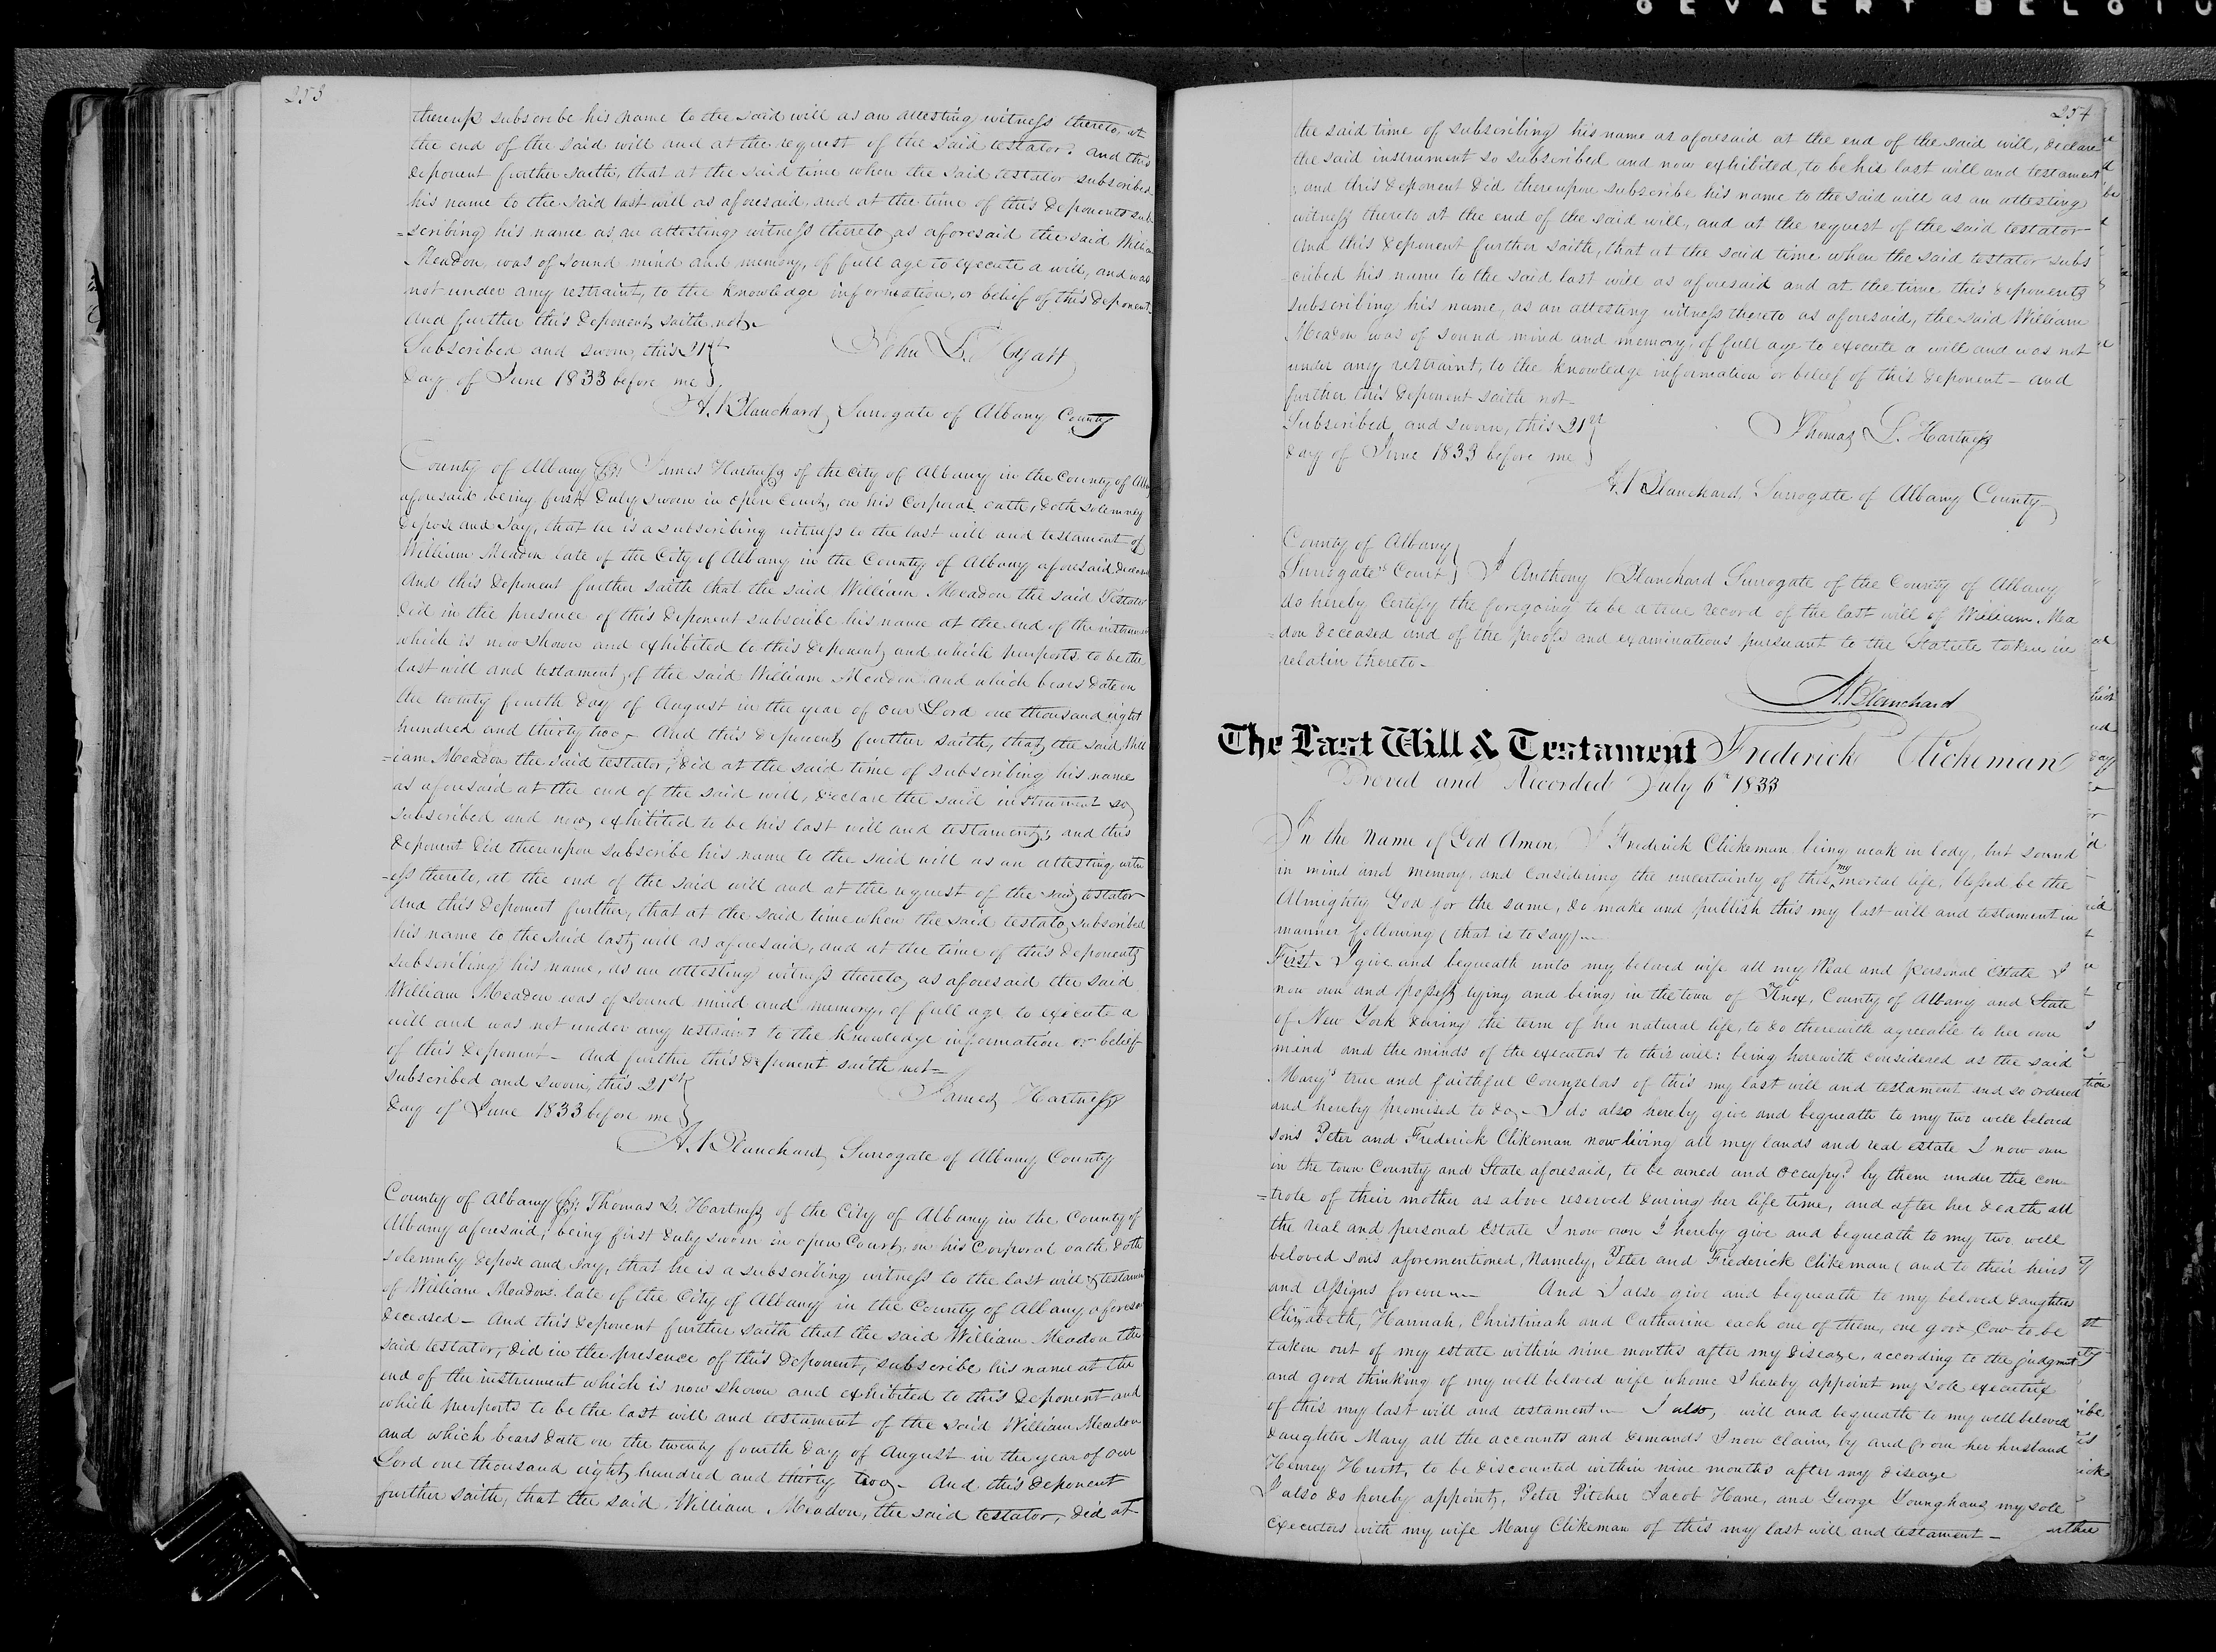 GEVAERT BELGIU
253
thereup subscribe his name to the said will as an attesting witness thereto, at
the end of the said will and at the request of the said testator. and this
deponent further saith, that at the said time when the said testator subscribed
his name to the said last will as aforesaid, and at the time of this deponents sub
=scribing his name as an attesting witness thereto as aforesaid the said William
Meadon, was of sound mind and memory, of full age to execute a will, and was
not under any restraint, to the knowledge information, or belief of this deponent.
and further this deponent saith not
Subscribed and sworn, this 21st
day of June 1833 before me
John F. Hyatt
A. Blanchard Surrogate of Albany County
County of Albany Ss: James Hartness of the city of Albany in the County of Alby
aforesaid being first duly sworn in open Court, on his Corporal oath, doth solemnly
depose and say, that he is a subscribing witness to the last will and testament of
William Meadon late of the City of Albany in the County of Albany aforesaid deceased
And this deponent further saith that the said William Meadon the said testator
did in the presence of this deponent subscribe his name at the end of the instrument
which is now shown and exhibited to this deponent, and which purports to be the
last will and testament, of the said William Meadon and which bears date on
the twenty fourth day of August in the year of our Lord one thousand eight
hundred and thirty two - And this deponent further saith, that, the said Will
=iam Meadon the said testator, did at the said time of subscribing his name
as aforesaid at the end of the said will, declare the said instrument so
subscribed and now exhibited to be his last will and testament; and this
deponent did thereupon subscribe his name to the said will as an attesting witn
-ess thereto, at the end of the said will and at the request of the said testator
And this deponent further, that at the said time when the said testator subscribed
his name to the said last will as aforesaid, and at the time of this deponents
subscribing his name, as an attesting witness thereto, as aforesaid the said
William Meadon was of sound mind and memory, of full age to execute a
will and was not under any restraint to the knowledge information or belief
of this deponent - And further this deponent saith not -
subscribed and sworn, this 21st
day of June 1833 before me
James Hartness
A. Blanchard, Surrogate of Albany County
County of Albany Ss: Thomas L. Hartness of the City of Albany in the County of
Albany aforesaid, being first duly sworn in open Court, on his Corporal oath, doth
solemnly depose and say, that he is a subscribing witness to the last will & testament
of William Meadon late of the City of Albany in the County of Albany aforesaid
deceased - And this deponent further saith that the said William Meadon the
said testator, did in the presence of this deponent, subscribe his name at the
end of the instrument which is now shown and exhibited to this deponent and
which purports to be the last will and testament of the said William Meadon
and which bears date on the twenty fourth day of August in the year of our
Lord one thousand eight hundred and thirty two - And this deponent
further saith, that the said William Meadon, the said testator, did at
254
the said time of subscribing his name as aforesaid at the end of the said will, declare
the said instrument so subscribed and now exhibited, to be his last will and testament
; and this deponent did thereupon subscribe his name to the said will as an attesting
witness thereto at the end of the said will, and at the request of the said testator
And this deponent further saith, that at the said time when the said testator subs
cribed his name to the said last will as aforesaid and at the time this deponents
subscribing his name, as an attesting witness thereto as aforesaid, the said William
Meadon was of sound mind and memory, of full age to execute a will and was not
under any restraint, to the knowledge information or belief of this deponent - and
further this deponent saith not -
Subscribed and sworn, this 21st
day of June 1833 before me
Thomas L. Hartness
A. Blanchard, Surrogate of Albany County
County of Albany
Surrogate's Court
I Anthony Blanchard Surrogate of the County of Albany
do hereby certify the foregoing to be a true record of the last will of William Mea
=don deceased and of the proofs and examinations pursuant to the Statute taken in
relation thereto -
A. Blanchard
The Last Will & Testament Frederick Clickeman
Proved and Recorded July 6th 1833
In the name of God Amen, I Frederick Clickeman, being weak in body, but sound
in mind and memory, and considering the uncertainty of this my mortal life, blessed be the
Almighty God for the same, do make and publish this my last will and testament in
manner following (that is to say) -
First - I give and bequeath unto my beloved wife all my Real and personal Estate I
now own and possess lying and being in the town of Knox, County of Albany and State
of New York during the term of her natural life, to do therewith agreeable to her own
mind and the minds of the executors to this will: being herewith considered as the said
Mary's true and faithful Counselors of this my last will and testament and so ordered
and hereby promised to do - I do also hereby give and bequeath to my two well beloved
sons Peter and Frederick Clikeman now living all my lands and real estate I now own
in the town County and State aforesaid, to be owned and occupy'd by them under the con
=trole of their mother as above reserved during her life time, and after her death all
the real and personal Estate I now own I hereby give and bequeath to my two well
beloved sons aforementioned, Namely, Peter and Frederick Clikeman and to their heirs
and Assigns forever - And I also give and bequeath to my beloved daughters
Elizabeth, Hannah, Christinah and Catharine each one of them, one good Cow to be
taken out of my estate within nine months after my disease, according to the judgmnt
and good thinking of my well beloved wife whome I hereby appoint my sole executrix
of this my last will and testament - I also, will and bequeath to my well beloved
daughter Mary all the accounts and demands I now claim, by and from her husband
Henrey Huett, to be discounted within nine months after my disease
I also do hereby appoint, Peter Pitcher Jacob Hane, and George Younghans, my sole
executors with my wife Mary Clikeman of this my last will and testament -